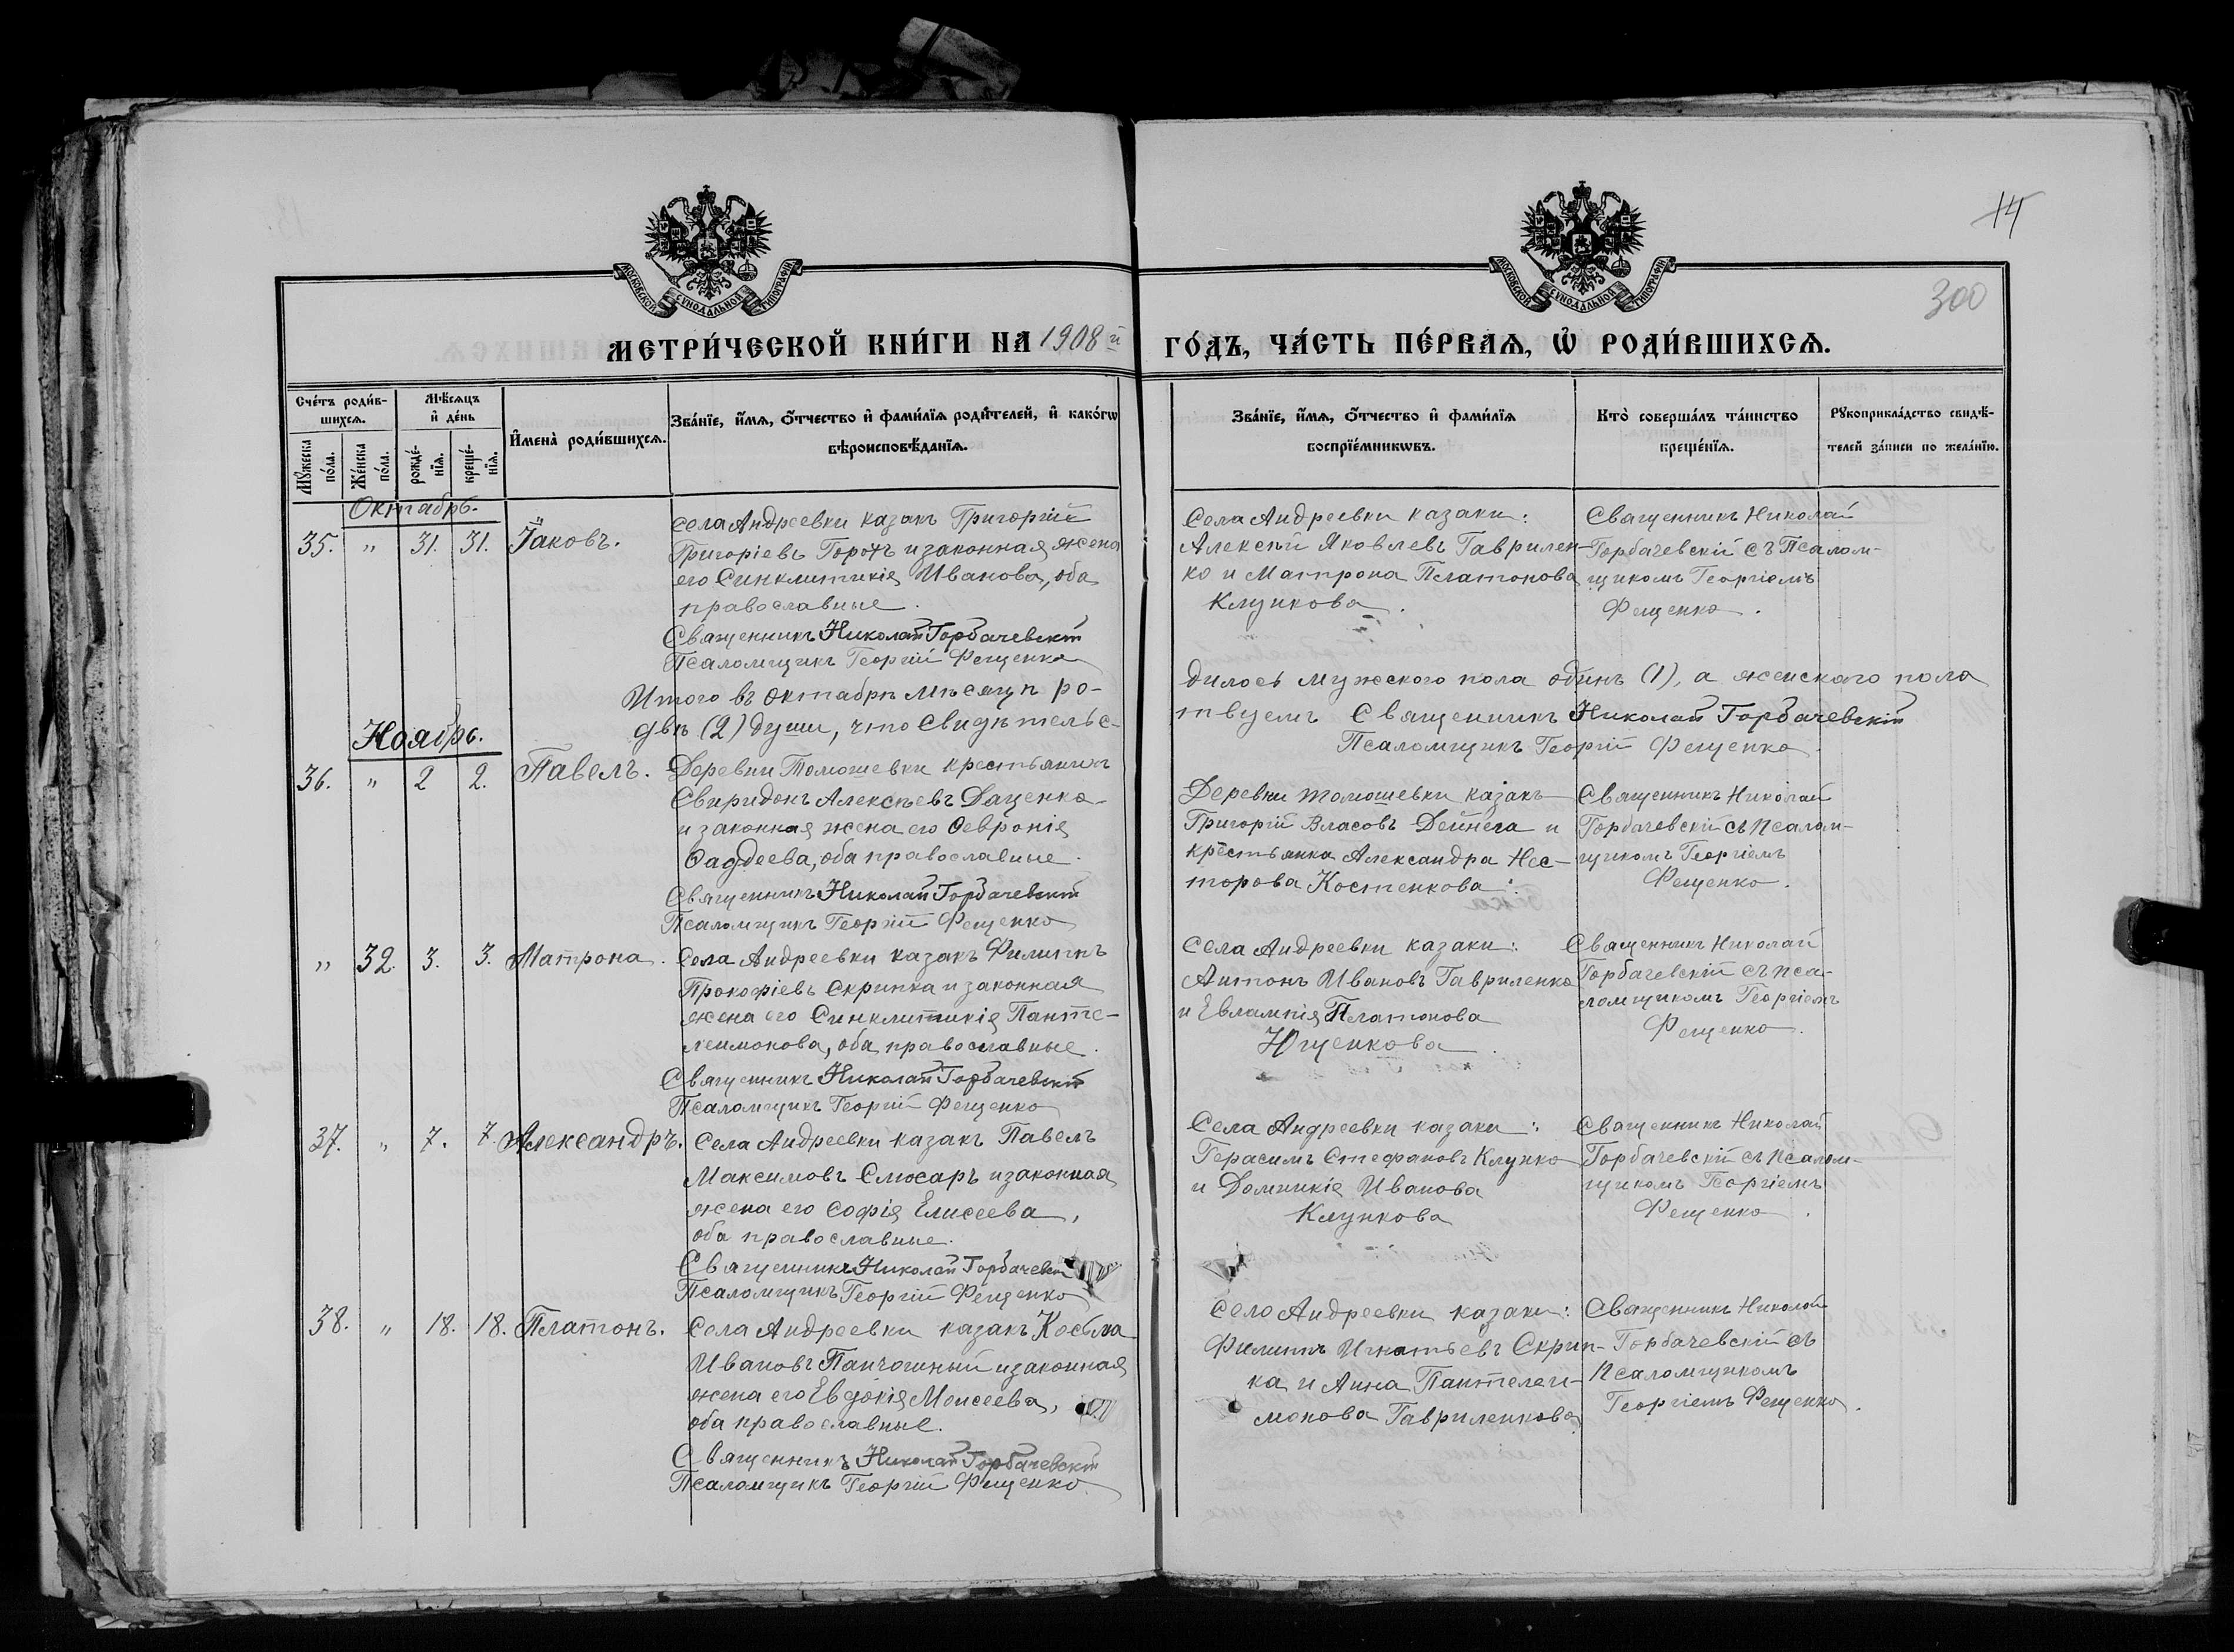 14
300
МОСКОВСКОЙ СУНОДАЛЬНОЙ ТИПОГРАФИИ
МОСКОВСКОЙ СУНОДАЛЬНОЙ ТИПОГРАФИИ
МЕТРИ́ЧЕСКОЙ КНИ́ГИ НА 1908й
ГО́ДЪ, ЧА́СТЬ ПЕ́РВАѦ, Ѡ҆ РОДИ́ВШИХСѦ.
Сче́тъ роди́в-
шихсѧ.
Мѣ́сѧцъ
и҆ де́нь
Мꙋ́жеска
по́ла.
Же́нска
по́ла.
рожде́-
нїѧ.
креще́-
нїѧ.
И҆мена̀ роди́вшихсѧ.
Зва́нїе, и҆́мѧ, ѻ҆́тчество и҆ фами́лїѧ роди́телей, и҆ како́гѡ
вѣроисповѣ́данїѧ.
Зва́нїе, и҆́мѧ, ѻ҆́тчество и҆ фами́лїѧ
воспрїе́мникѡвъ.
Кто̀ соверша́лъ та́инство
креще́нїѧ.
Рꙋкоприкла́дство свидѣ́-
телей за́писи по жела́нїю.
Октабрь.
35. " 31. 31. Іаковъ.
села Андреевки казакъ Григорій
Григоріевъ Горохъ и законная жена
его Синклитикія Иванова, оба
православные.
Священникъ Николай Горбачевскій
Псаломщикъ Георгій Фещенко
Села Андреевки казаки:
Алексѣй Яковлевъ Гаврилен-
ко и Матрона Платонова
Клункова.
Священникъ Николай
Горбачевскій съ Псалом-
щикомъ Георгіемъ
Фещенко.
Итого въ октабрѣ мѣсяцѣ ро-
дилось мужского пола одинъ (1), а женскаго пола
двѣ (2) души, что свидѣтельс-
твуемъ Священникъ Николай Горбачевскій
Псаломщикъ Георгій Фещенко.
Ноябрь.
36. " 2 2. Павелъ.
Деревни Томошевки крестьянинъ
Свиридонъ Алексѣевъ Даценко
и законная жена его Ѳевронія
Ѳаддеева, оба православные.
Священникъ Николай Горбачевскій
Псаломщикъ Георгій Фещенко
Деревни Томошевки казакъ
Григорій Власовъ Дейнега и
крестьянка Александра Нес-
торова Костенкова.
Священникъ Николай
Горбачевскій съ Псалом-
щикомъ Георгіемъ
Фещенко.
" 32. 3. 3. Матрона.
Села Андреевки казакъ Филиппъ
Прокофіевъ Скрипка и законная
жена его Синклитикія Панте-
леимонова, оба православные.
Священникъ Николай Горбачевскій
Псаломщикъ Георгій Фещенко
Села Андреевки казаки:
Антонъ Ивановъ Гавриленко
и Евлампія Платонова
Ющенкова.
Священникъ Николай
Горбачевскій съ Пса-
ломщикомъ Георгіемъ
Фещенко.
37. " 7. 7. Александръ.
Села Андреевки казакъ Павелъ
Максимовъ Слюсаръ и законная
жена его Софія Елисеева,
оба православные.
Священникъ Николай Горбачевскій
Псаломщикъ Георгій Фещенко
Села Андреевки казаки:
Герасимъ Стефановъ Клунко
и Домникія Иванова
Клункова
Священникъ Николай
Горбачевскій съ Псалом-
щикомъ Георгіемъ
Фещенко.
38. " 18. 18. Платонъ.
Села Андреевки казакъ Косьма
Ивановъ Панчошный и законная
жена его Евдокія Моисеева,
оба православные.
Священникъ Николай Горбачевскій
Псаломщикъ Георгій Фещенко
Села Андреевки казаки:
Филиппъ Игнатьевъ Скрип-
ка и Анна Пантелеи-
монова Гавриленкова.
Священникъ Николай
Горбачевскій съ
Псаломщикомъ
Георгіемъ Фещенко.